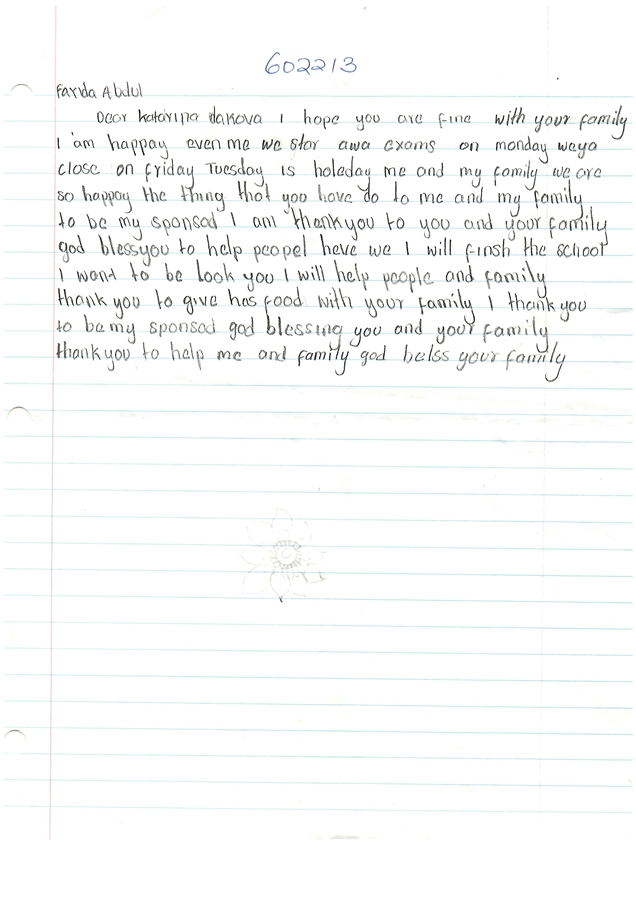 602213
Farida Abdul
Dear katarina dakova I hope you are fine with your family
I am happay even me we star awa exams on monday weya
close on friday Tuesday is holeday me and my family we are
so happay the thing that you have do to me and my family
to be my sponsod I am thankyou to you and your family
god blessyou to help peopel heve we I will finsh the school
I want to be look you I will help people and family
thank you to give has food with your family I thank you
to be my sponsod god blessing you and your family
thank you to help me and family god belss your family